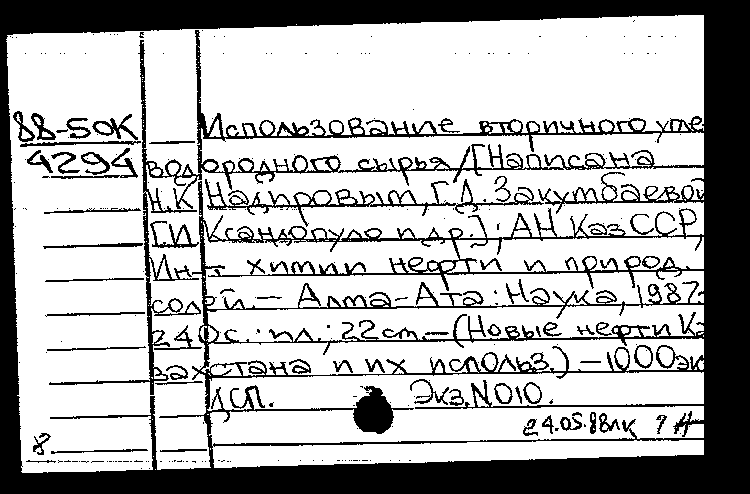 88-50К Использование вторичного угле
4294 водородного сырья/[Написана
Н.К Надировым, Г.Д. Закумбаевой
Г.И Ксандопуло и др.]; АН Каз ССР,
Ин-т химии нефти и природ.
солей.— Алма-Ата: Наука, 1987-
240с.: ил.; 22 см.—(Новые нефти Ка
захстана и их использ.) —1000эк
ДСП. Экз.N010.
24.05.88лк
8.